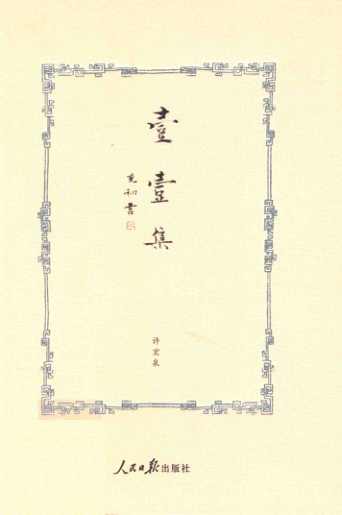 壹壹集
充和书
许宏泉
人民日报出版社